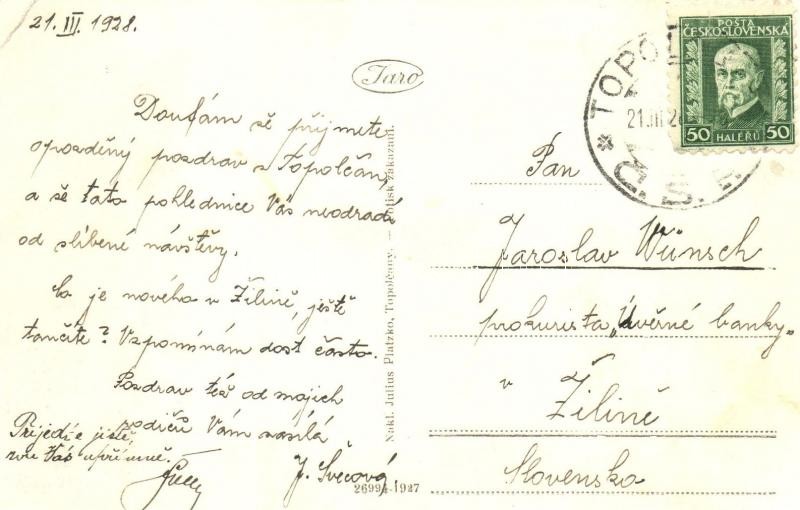 21. III. 1928.
Faro
Doufám že přijmete
opozděný pozdrav z Topolčan,
a že tato pohlednice Vás neodradí
od slíbené návštěvy.
Co je nového v Žilině, ještě
tančíte? Vzpomínám dost často.
Pozdrav též od mojich
rodičů Vám zasílá
J. Švecová,
Přijeďte jistě,
zve Vás upřímně.
Nakl. Julius Platzko, Topolčany. — Otisk zakázaný.
26994-1927
POŠTA
ČESKOSLOVENSKÁ
50 HALÉŘŮ 50
* TOPOĽ
21.III.28
Č. S. R.
Pan
Jaroslav Wünsch
prokurista „Úvěrné banky"
v
Žilině
Slovensko